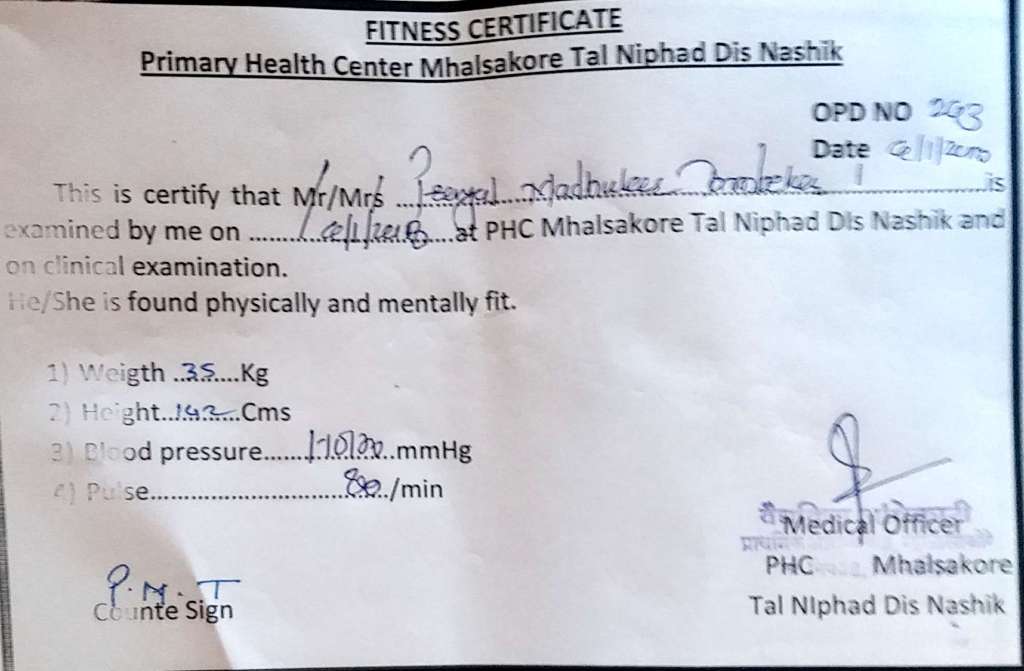 FITNESS CERTIFICATE
Primary Health Center Mhalsakore Tal Niphad Dis Nashik
OPD NO
Date
This is certify that Mr/Mrs ................ is
examined by me on ................ at PHC Mhalsakore Tal Niphad DIs Nashik and
on clinical examination.
He/She is found physically and mentally fit.
1) Weigth ..35.....Kg
2) Height..142....Cms
3) Blood pressure.........mmHg
4) Pulse................................80../min
Medical Officer
PHC Mhalsakore
Tal NIphad Dis Nashik
P.M.T
Counte Sign